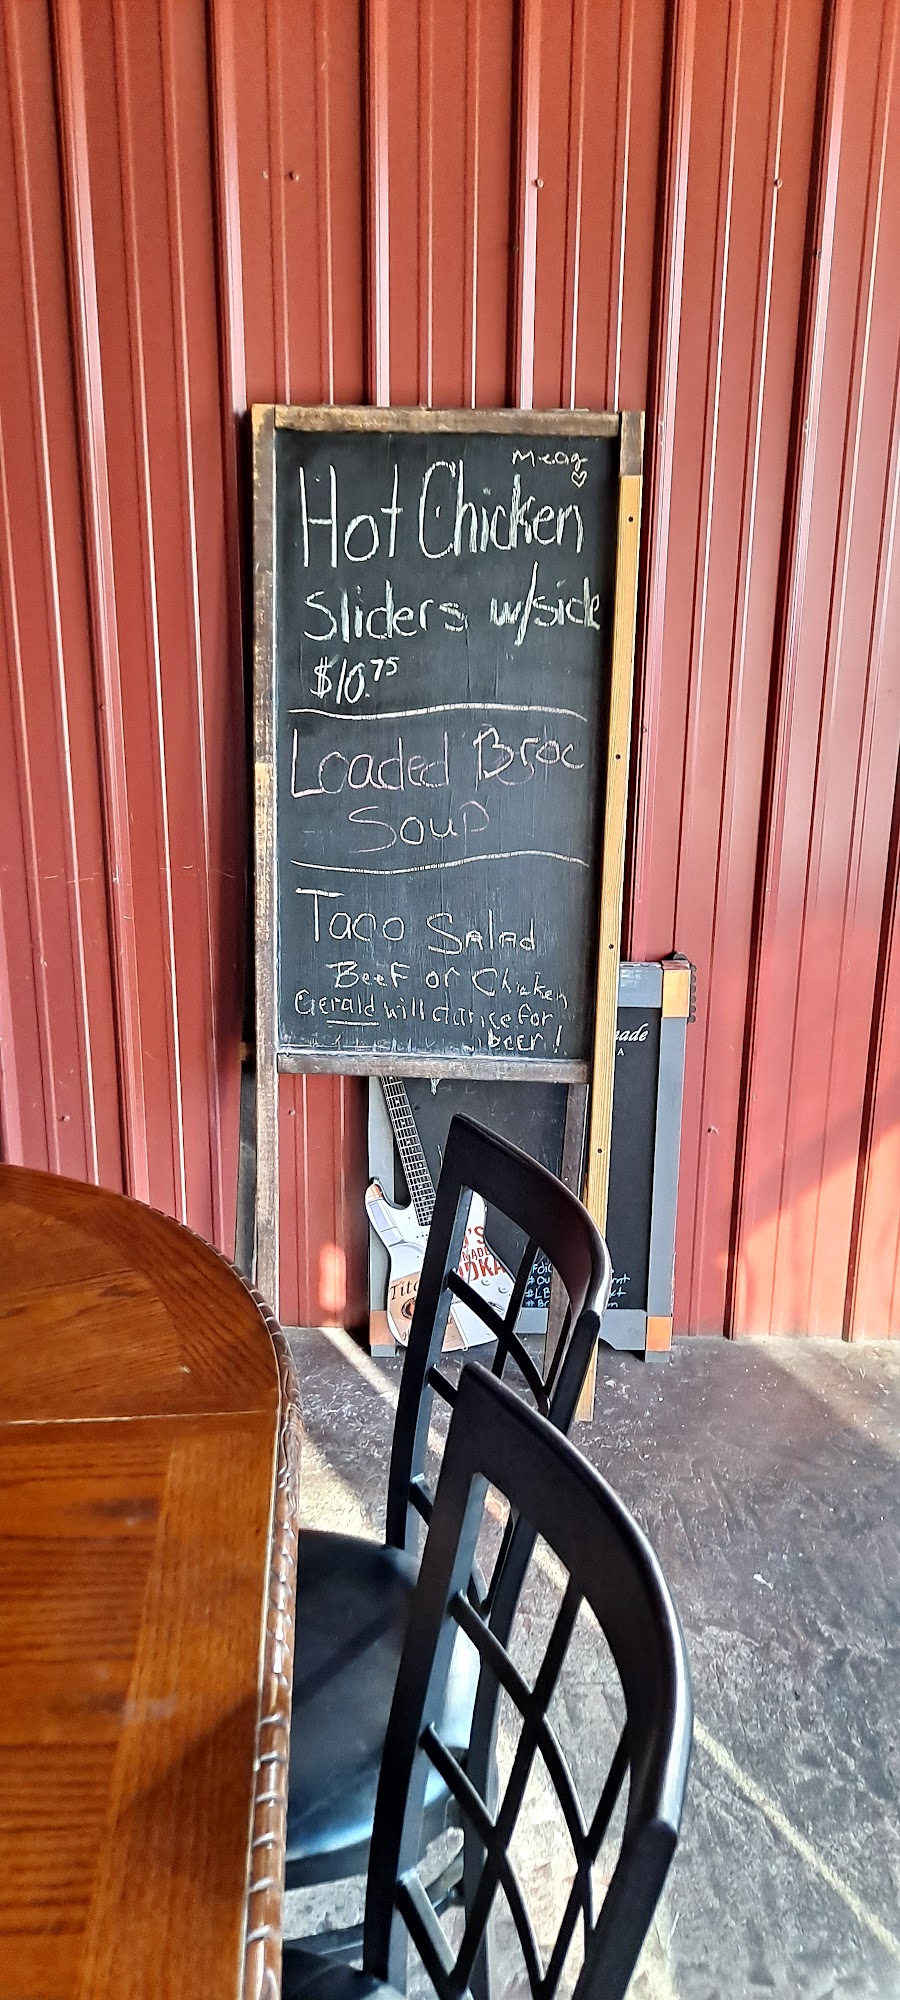 Meag
Hot Chicken
Sliders w/side
$10.75
Loaded Broc
Soup
Taco Salad
Beef or Chicken
Gerald will dance for
beer!
made
Tito
MADE